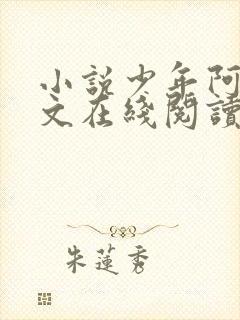 小説少年阿
文在綫閱讀
朱蓮秀